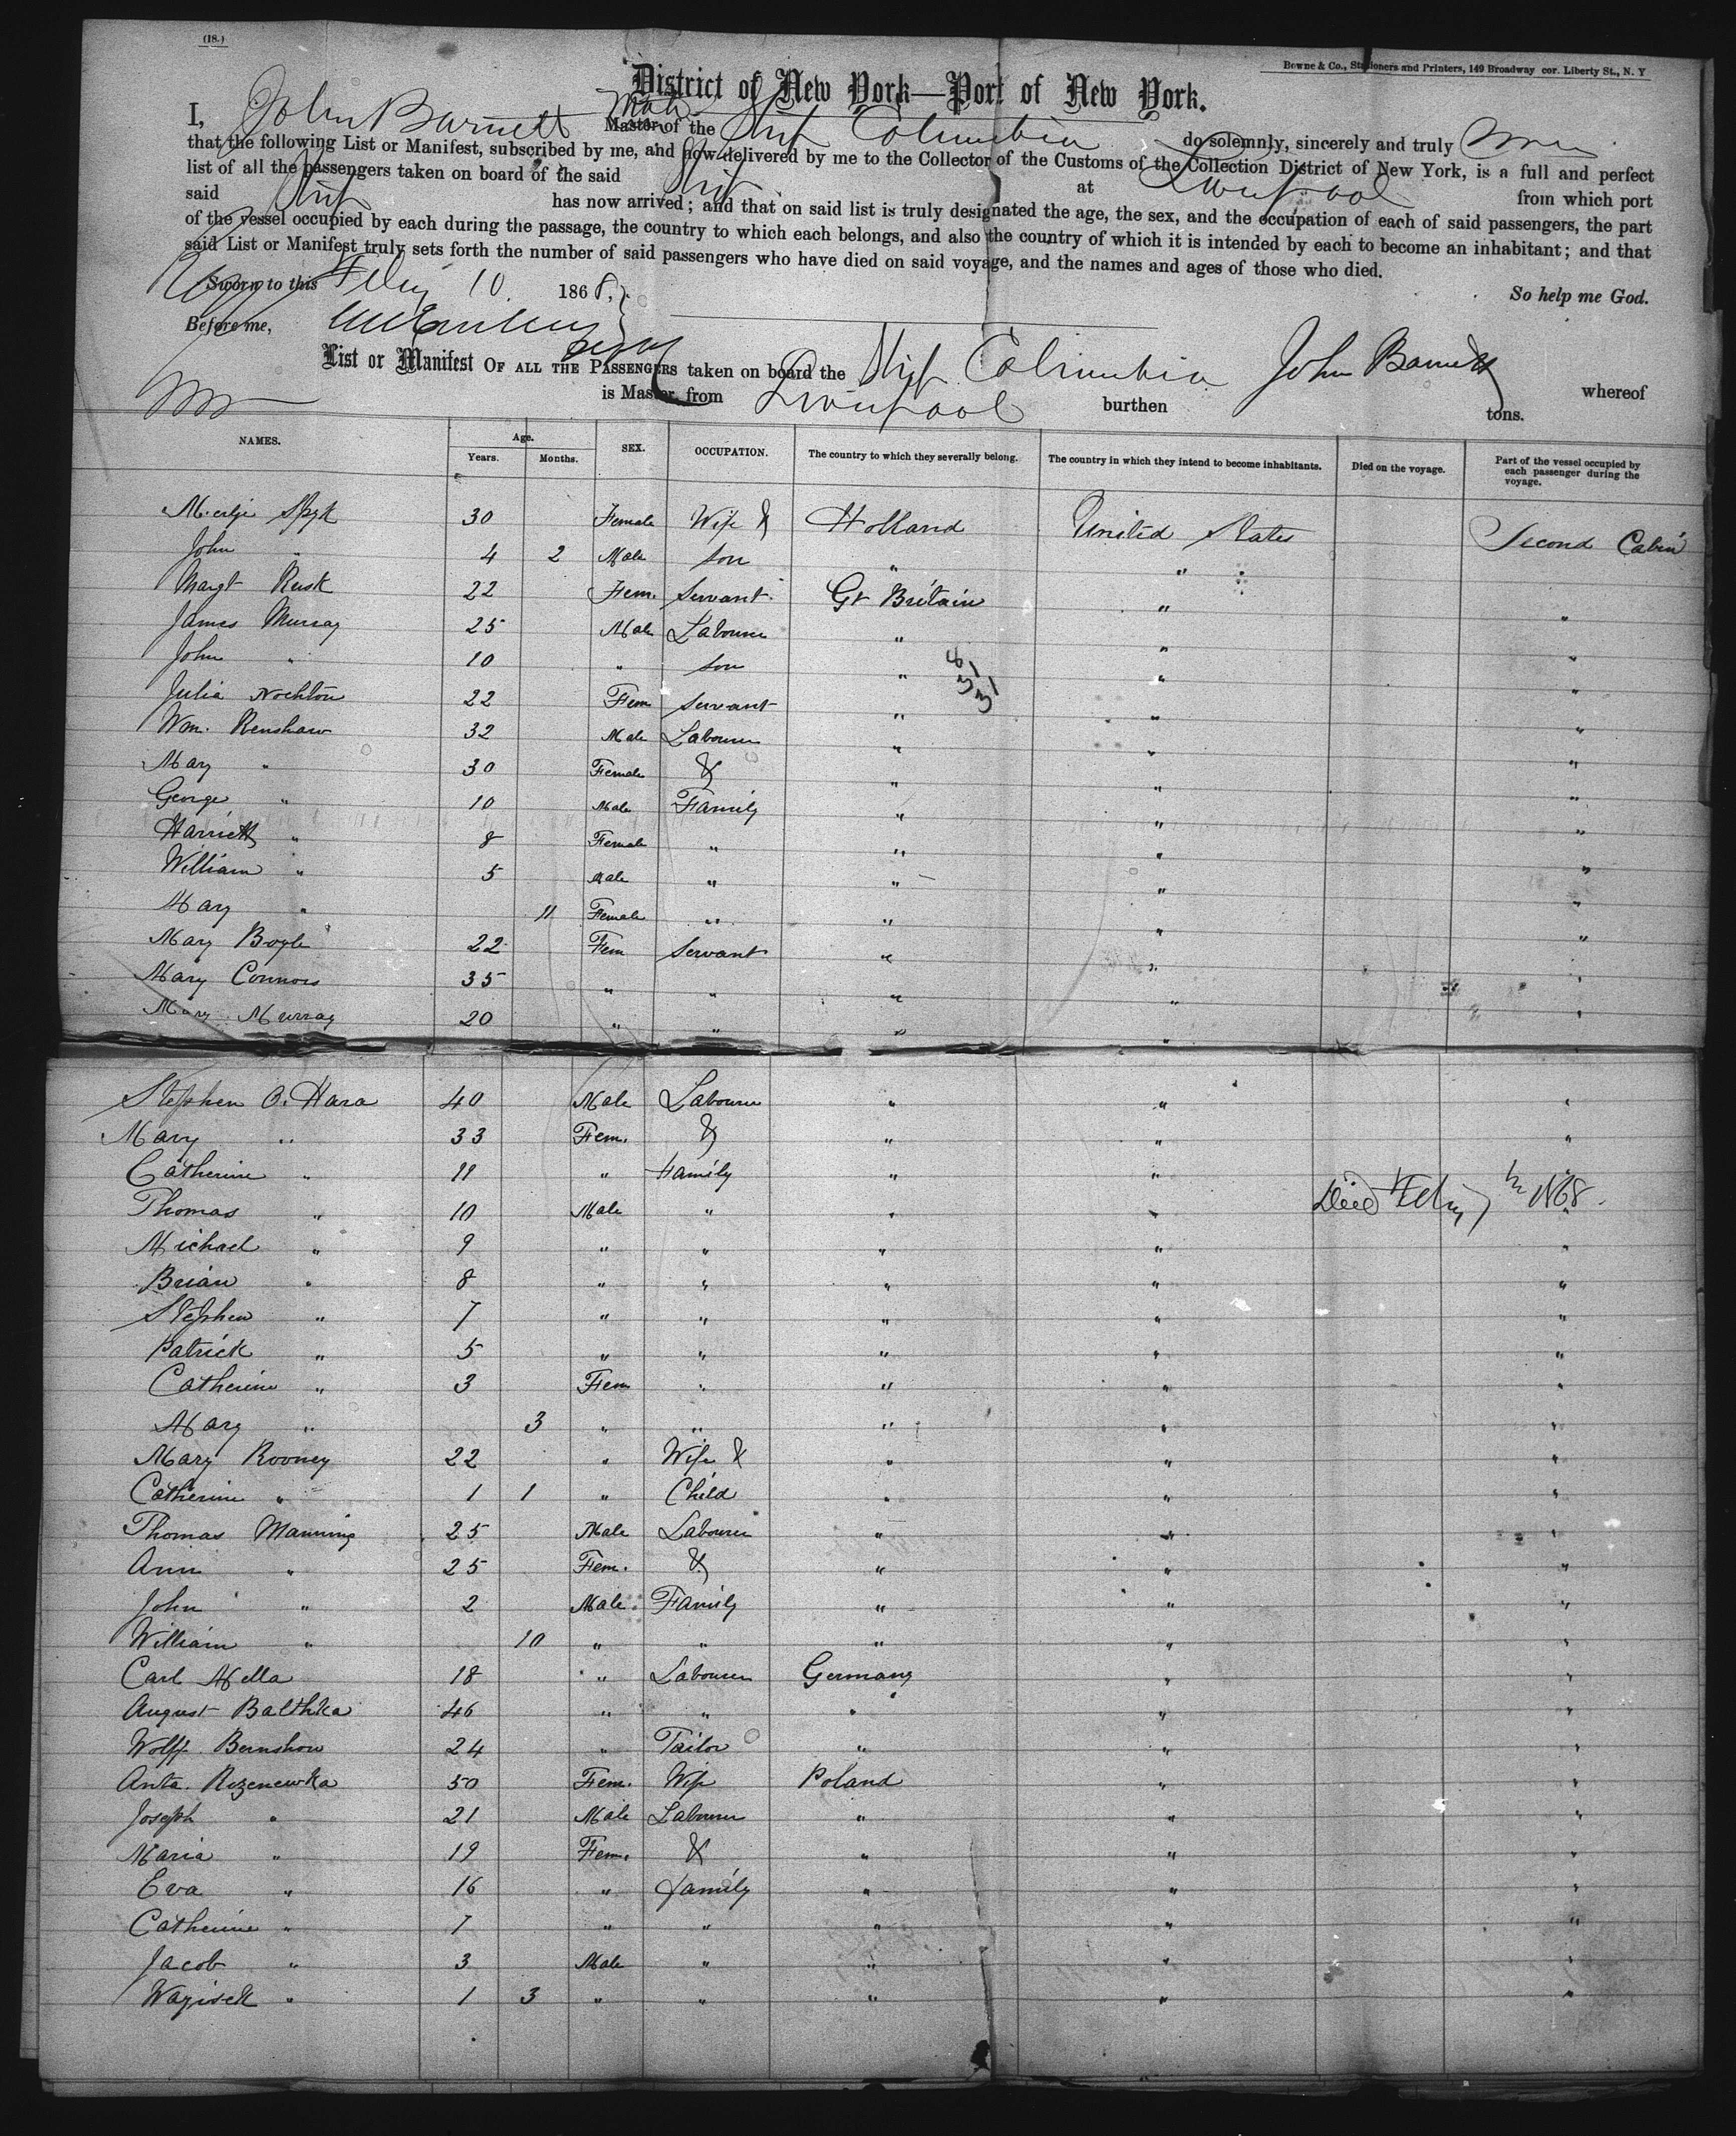 (18.)
Bowne & Co., Stationers and Printers, 149 Broadway cor. Liberty St., N. Y
District of New York—Port of New York.
I, John Barnett Mate Master of the Ship Columbia do solemnly, sincerely and truly Swear
that the following List or Manifest, subscribed by me, and now delivered by me to the Collector of the Customs of the Collection District of New York, is a full and perfect
list of all the passengers taken on board of the said Ship at Liverpool from which port
said Ship has now arrived; and that on said list is truly designated the age, the sex, and the occupation of each of said passengers, the part
of the vessel occupied by each during the passage, the country to which each belongs, and also the country of which it is intended by each to become an inhabitant; and that
said List or Manifest truly sets forth the number of said passengers who have died on said voyage, and the names and ages of those who died.
Sworn to this Feby 10 1868, So help me God.
Before me,
List or Manifest OF ALL THE PASSENGERS taken on board the Ship Columbia John Barnett whereof
is Master, from Liverpool burthen tons.
NAMES. Age. Years. Months. SEX. OCCUPATION. The country to which they severally belong. The country in which they intend to become inhabitants. Died on the voyage. Part of the vessel occupied by each passenger during the voyage.
Spyk 30 Female Wife & Holland United States Second Cabin
John " 4 2 Male Son " "
Margt Rusk 22 Fem. Servant Gt Britain " "
James Murray 25 Male Labourer " " "
John " 10 " Son " " "
Julia Nochton 22 Fem Servant " " "
Wm. Renshaw 32 Male Labourer " " "
Mary " 30 Female & " " "
George " 10 Male Family " " "
Harriett " 8 Female " " " "
William " 5 Male " " " "
Mary " 11 Female " " " "
Mary Boyle 22 Fem Servant " " "
Mary Connors 35 " " " " "
Mary Murray 20 " " " "
Stephen O. Hara 40 Male Labourer " " "
Mary " 33 Fem. & " " "
Catherine " 11 " Family " "
Thomas " 10 Male " " " Died Feby 7th 1868. "
Michael " 9 " " " " "
Brian " 8 " " " " "
Stephen " 7 " " " " "
Patrick " 5 " " " " "
Catherine " 3 Fem " " " "
Mary " 3 " " " " "
Mary Rooney 22 " Wife & " " "
Catherine " 1 1 " Child " " "
Thomas Manning 25 Male Labourer " " "
Ann " 25 Fem. & " " "
John " 2 Male Family " " "
William " 10 " " " " "
Carl Hella 18 " Labourer Germany " "
August Balthka 46 " " " " "
Wolff Bernshow 24 " Tailor " " "
Anta. Rizenewka 50 Fem. Wife Poland " "
Joseph " 21 Male Labourer " " "
Maria " 19 Fem. & " " "
Eva " 16 " family " " "
Catherine " 7 " " " " "
Jacob " 3 Male " " " "
1 3 " " " " "